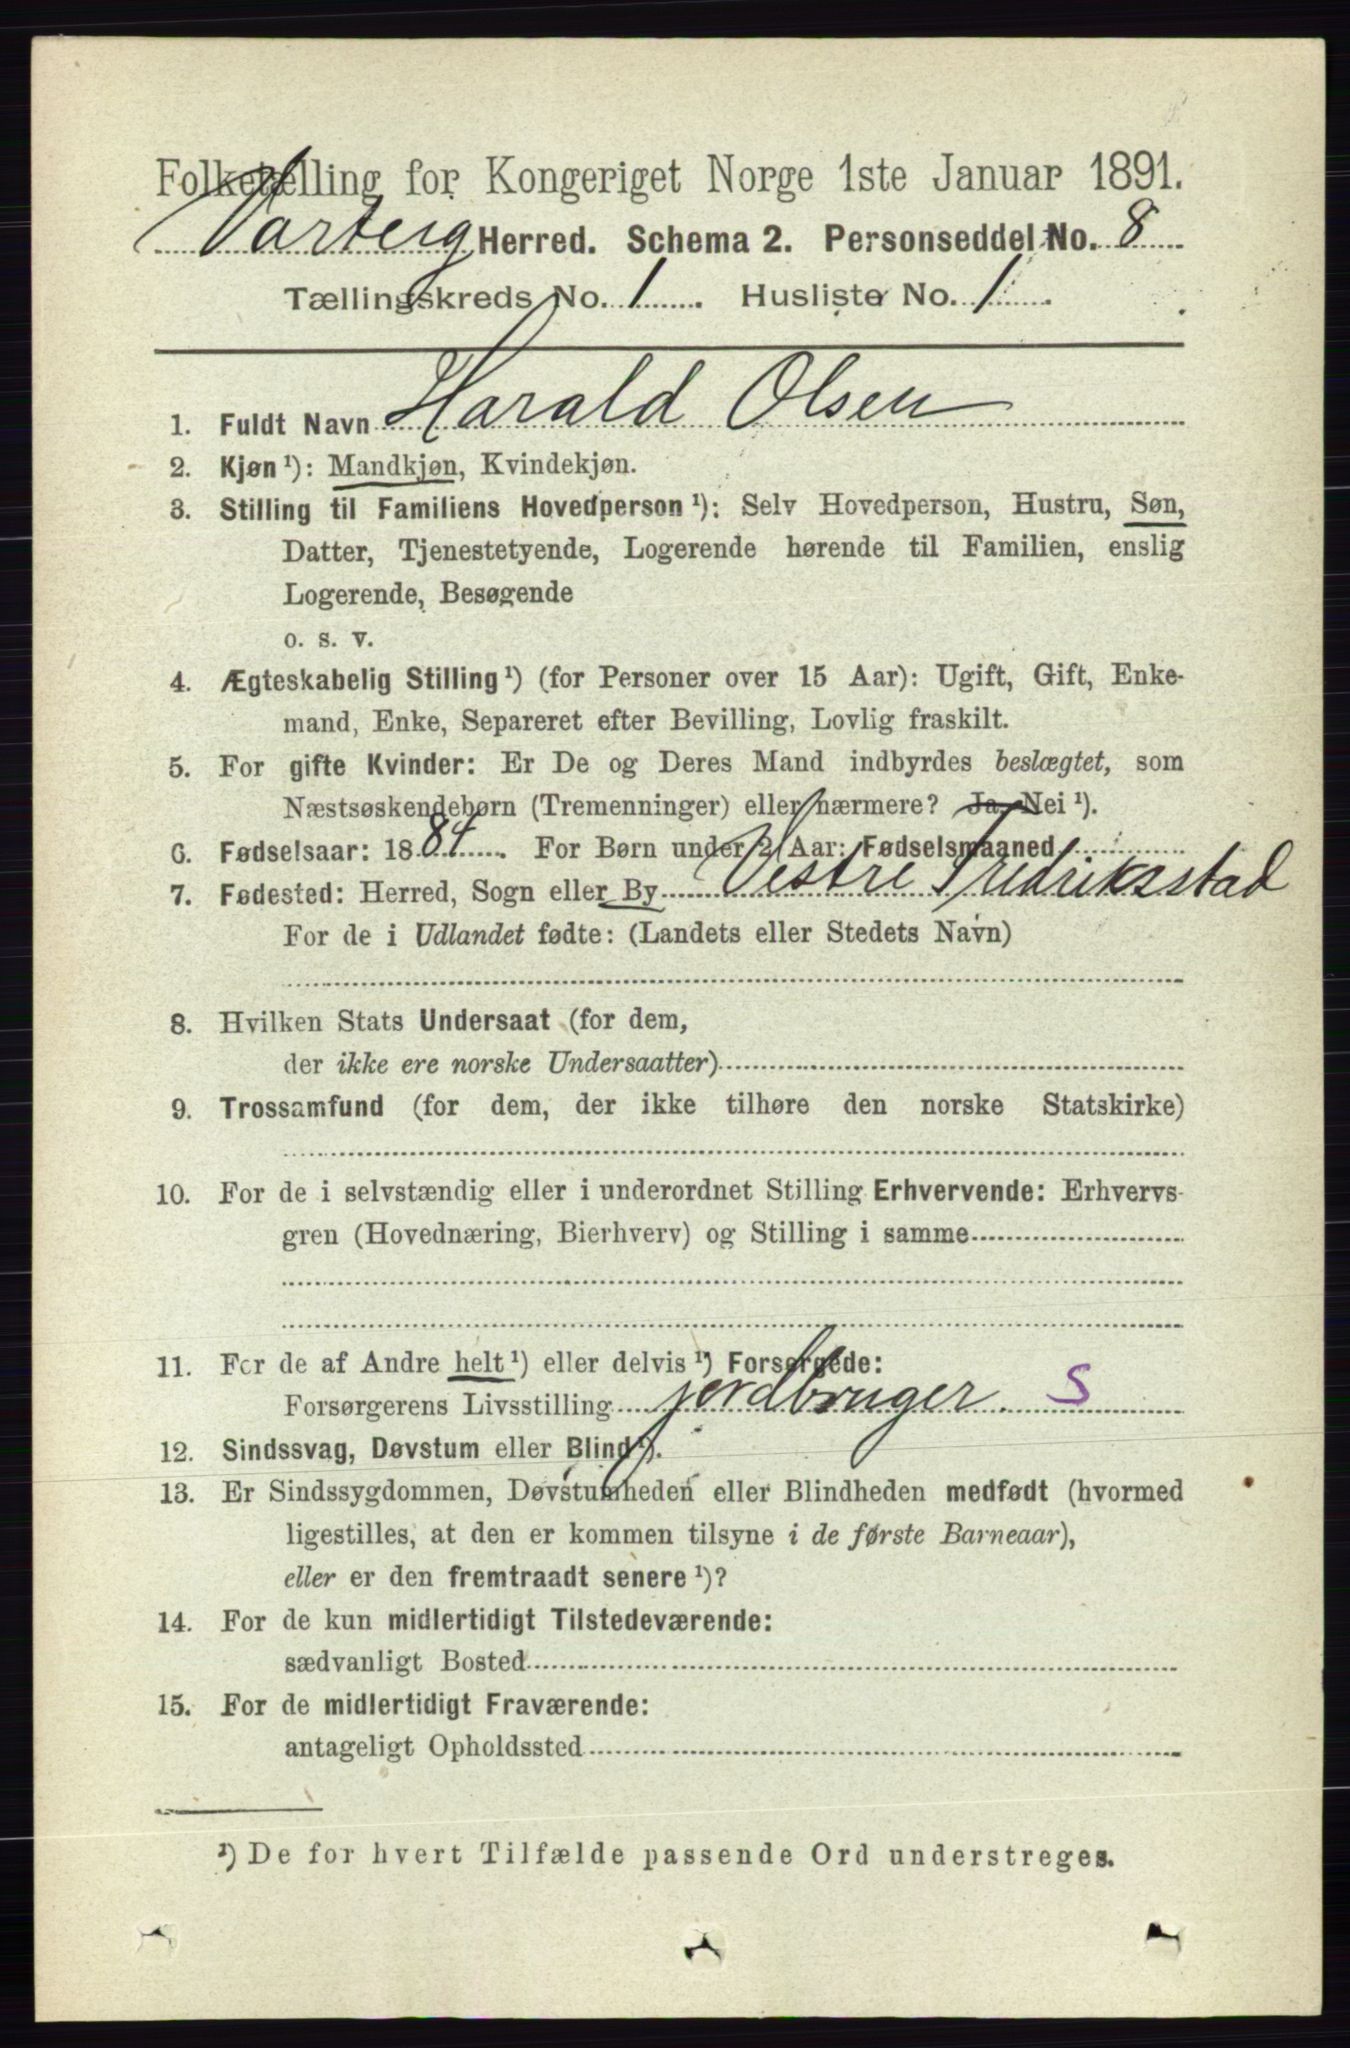 Folketælling for Kongeriget Norge 1ste Januar 1891.
Varteig Herred. Schema 2. Personseddel No. 8
Tællingskreds No. 1. Husliste No. 1.
1. Fuldt Navn Harald Olsen
2. Kjøn ¹): Mandkjøn, Kvindekjøn.
3. Stilling til Familiens Hovedperson ¹): Selv Hovedperson, Hustru, Søn,
Datter, Tjenestetyende, Logerende hørende til Familien, enslig
Logerende, Besøgende
o. s. v.
4. Ægteskabelig Stilling ¹) (for Personer over 15 Aar): Ugift, Gift, Enke-
mand, Enke, Separeret efter Bevilling, Lovlig fraskilt.
5. For gifte Kvinder: Er De og Deres Mand indbyrdes beslægtet, som
Næstsøskendebørn (Tremenninger) eller nærmere? Ja, Nei ¹).
6. Fødselsaar: 1884. For Børn under 2 Aar: Fødselsmaaned
7. Fødested: Herred, Sogn eller By Vestre Fredriksstad
For de i Udlandet fødte: (Landets eller Stedets Navn)
8. Hvilken Stats Undersaat (for dem,
der ikke ere norske Undersaatter)
9. Trossamfund (for dem, der ikke tilhøre den norske Statskirke)
10. For de i selvstændig eller i underordnet Stilling Erhvervende: Erhvervs-
gren (Hovednæring, Bierhverv) og Stilling i samme
11. For de af Andre helt ¹) eller delvis ¹) Forsørgede:
Forsørgerens Livsstilling jordbruger. S
12. Sindssvag, Døvstum eller Blind ¹).
13. Er Sindssygdommen, Døvstumheden eller Blindheden medfødt (hvormed
ligestilles, at den er kommen tilsyne i de første Barneaar),
eller er den fremtraadt senere ¹)?
14. For de kun midlertidigt Tilstedeværende:
sædvanligt Bosted
15. For de midlertidigt Fraværende:
antageligt Opholdssted
¹) De for hvert Tilfælde passende Ord understreges.